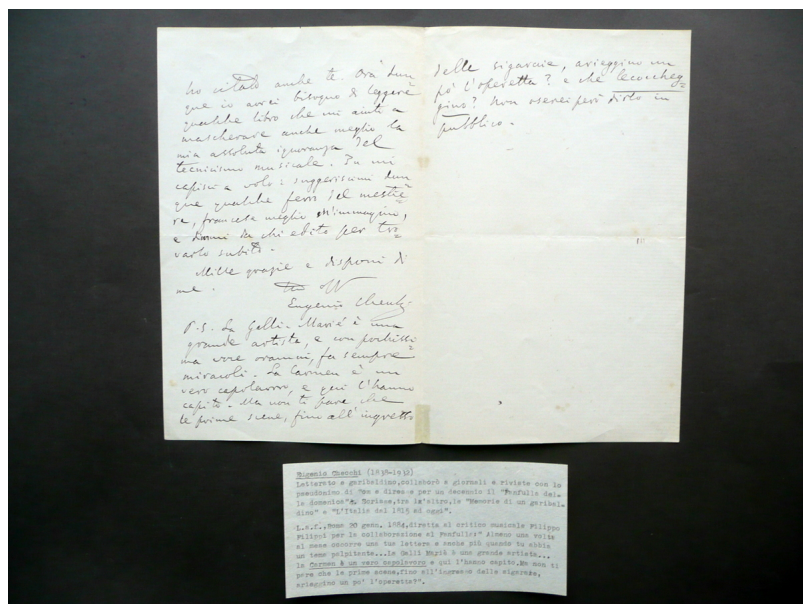 ho citato anche te. Ora dun
que io avrei bisogno di leggere
qualche libro che mi aiuti a
mascherare anche meglio la
mia assoluta ignoranza del
tecnicismo musicale. Tu mi
capisci a volo: suggeriscimi dun
que qualche ferro del mestie=
re, francese meglio m'immagino,
e dimmi da chi edito per tro=
varlo subito.
Mille grazie e disponi di
me.
Eugenio Checchi
P.S. La Galli-Marié è una
grande artista, e con pochissi=
ma voce oramai, fa sempre
miracoli. La Carmen è un
vero capolavoro, e qui l'hanno
capito. Ma non ti pare che
le prime scene, fino all'ingresso
delle sigaraie, arieggino un
po' l'operetta? e che lecoccheg=
gino? Non oserei però dirlo in
pubblico.
Eugenio Checchi (1838-1932)
Letterato e garibaldino,collaborò a giornali e riviste con lo
pseudonimo di
le domenica". Scrisse,tra l'altro,le "Memorie di un garibal-
dino" e "L'Italia dal 1815 ad oggi".
L.a.f.,Roma 20 genn. 1884,diretta al critico musicale Filippo
Filippi per la collaborazione al Fanfulla:" Almeno una volta
al mese occorre una tua lettera e anche più quando tu abbia
un tema palpitante...La Galli Marià è una grande artista...
la Carmen è un vero capolavoro e qui l'hanno capito.Ma non ti
pare che le prime scene,fino all'ingresso delle sigaraie,
arieggino un po' l'operetta?".